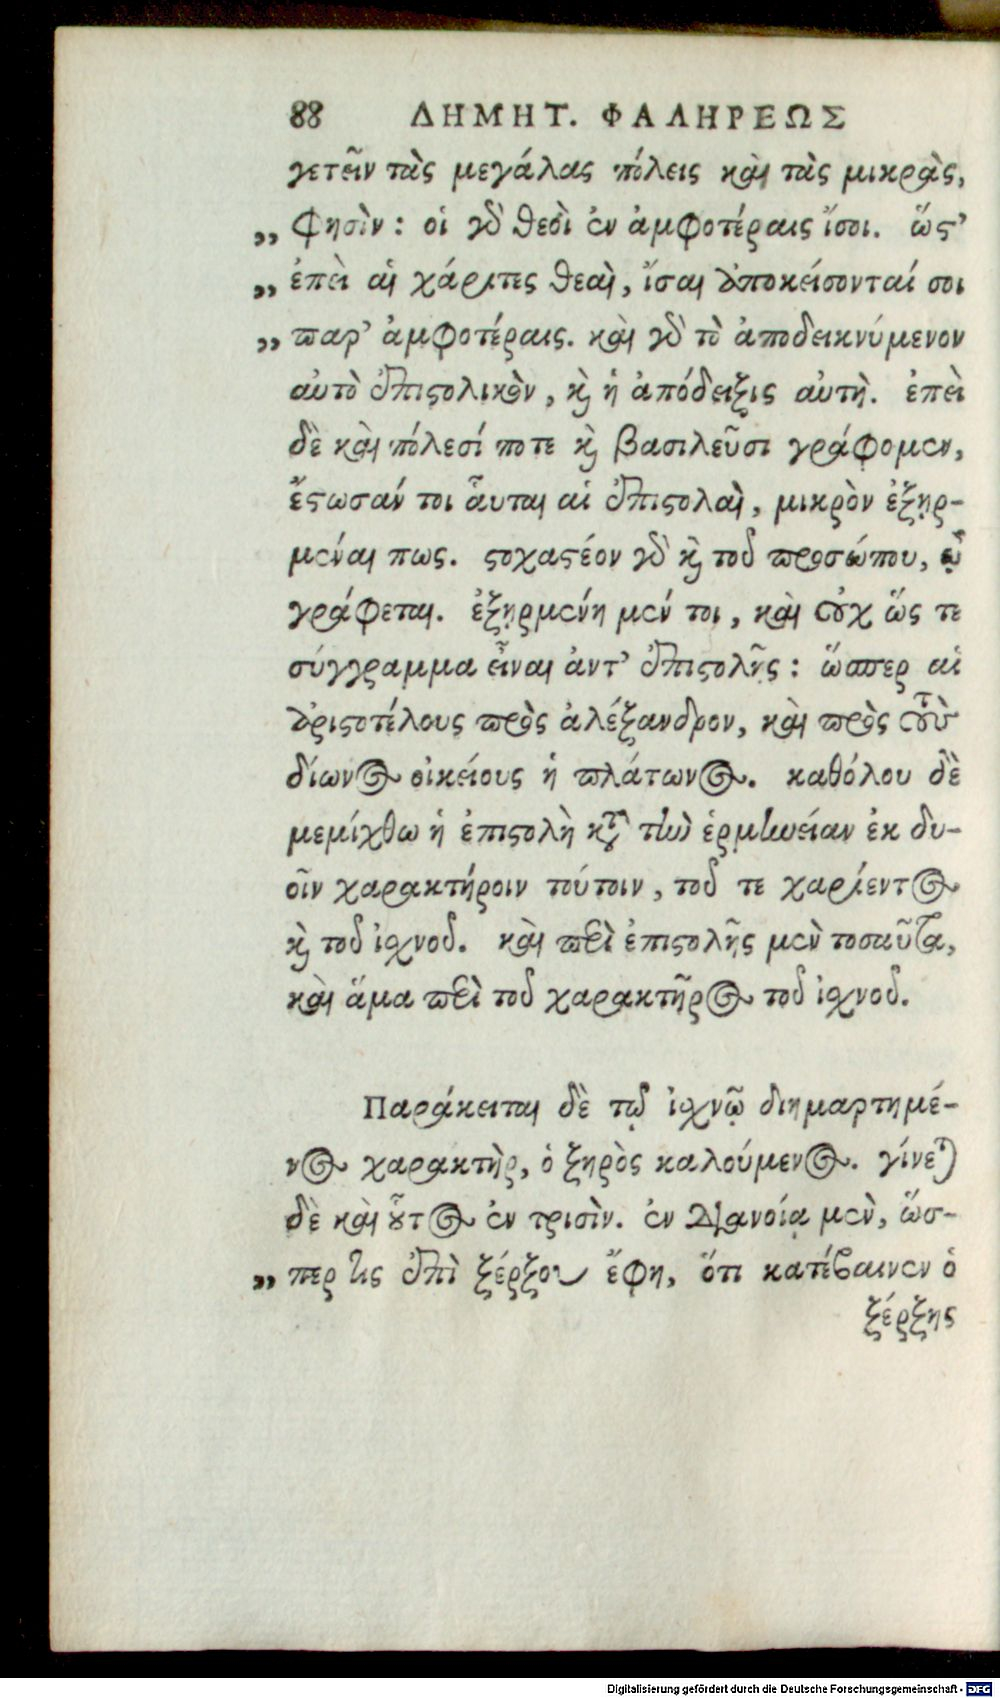 88 ΔΗΜΗΤ. ΦΑΛΗΡΕΩΣ
γετεῖν τὰς μεγάλας πόλεις καὶ τὰς μικρὰς,
„ φησίν: οἱ γὸ θεοὶ ἐν ἀμφοτέραις ἴσοι. ὥς’
„ ἐπεὶ αἱ χάριτες θεαὶ, ἴσαι ἀποκείσονταί σοι
„ παρ’ ἀμφοτέραις. καὶ γὸ τὸ ἀποδεικνύμενον
αὐτὸ ἐπιστολικὸν, κὶ ἡ ἀπόδειξις αὐτὴ. ἐπεὶ
δὲ καὶ πόλεσί ποτε κὶ βασιλεῦσι γράφομεν,
ἔστωσάν τοι αὗται αἱ ἐπιστολαὶ, μικρὸν ἐξηρ-
μέναι πως. στοχαστέον γὸ κὶ τοῦ προσώπου, ᾧ
γράφεται. ἐξηρμένη μέν τοι, καὶ οὐχ ὥς τε
σύγγραμμα εἶναι ἀντ’ ἐπιστολῆς: ὥσπερ αἱ
ἀριστοτέλους πρὸς ἀλέξανδρον, καὶ πρὸς τοὺς
δίωνος οἰκείους ἡ πλάτωνος. καθόλου δὲ
μεμίχθω ἡ ἐπιστολὴ κατὰ τὴν ἑρμηνείαν ἐκ δυ-
οῖν χαρακτήροιν τούτοιν, τοῦ τε χαρίεντος
κὶ τοῦ ἰχνοῦ. καὶ περὶ ἐπιστολῆς μὲν τοσαῦτα,
καὶ ἅμα περὶ τοῦ χαρακτῆρος τοῦ ἰχνοῦ.
Παράκειται δὲ τῷ ἰχνῷ διημαρτημέ-
νος χαρακτὴρ, ὁ ξηρὸς καλούμενος. γίνεται
δὲ καὶ οὗτος ἐν τρισὶν. ἐν διανοίᾳ μὲν, ὥσ-
„ περ τις ἐπὶ ξέρξου ἔφη, ὅτι κατέβαινεν ὁ
ξέρξης
Digitalisierung gefördert durch die Deutsche Forschungsgemeinschaft - DFG